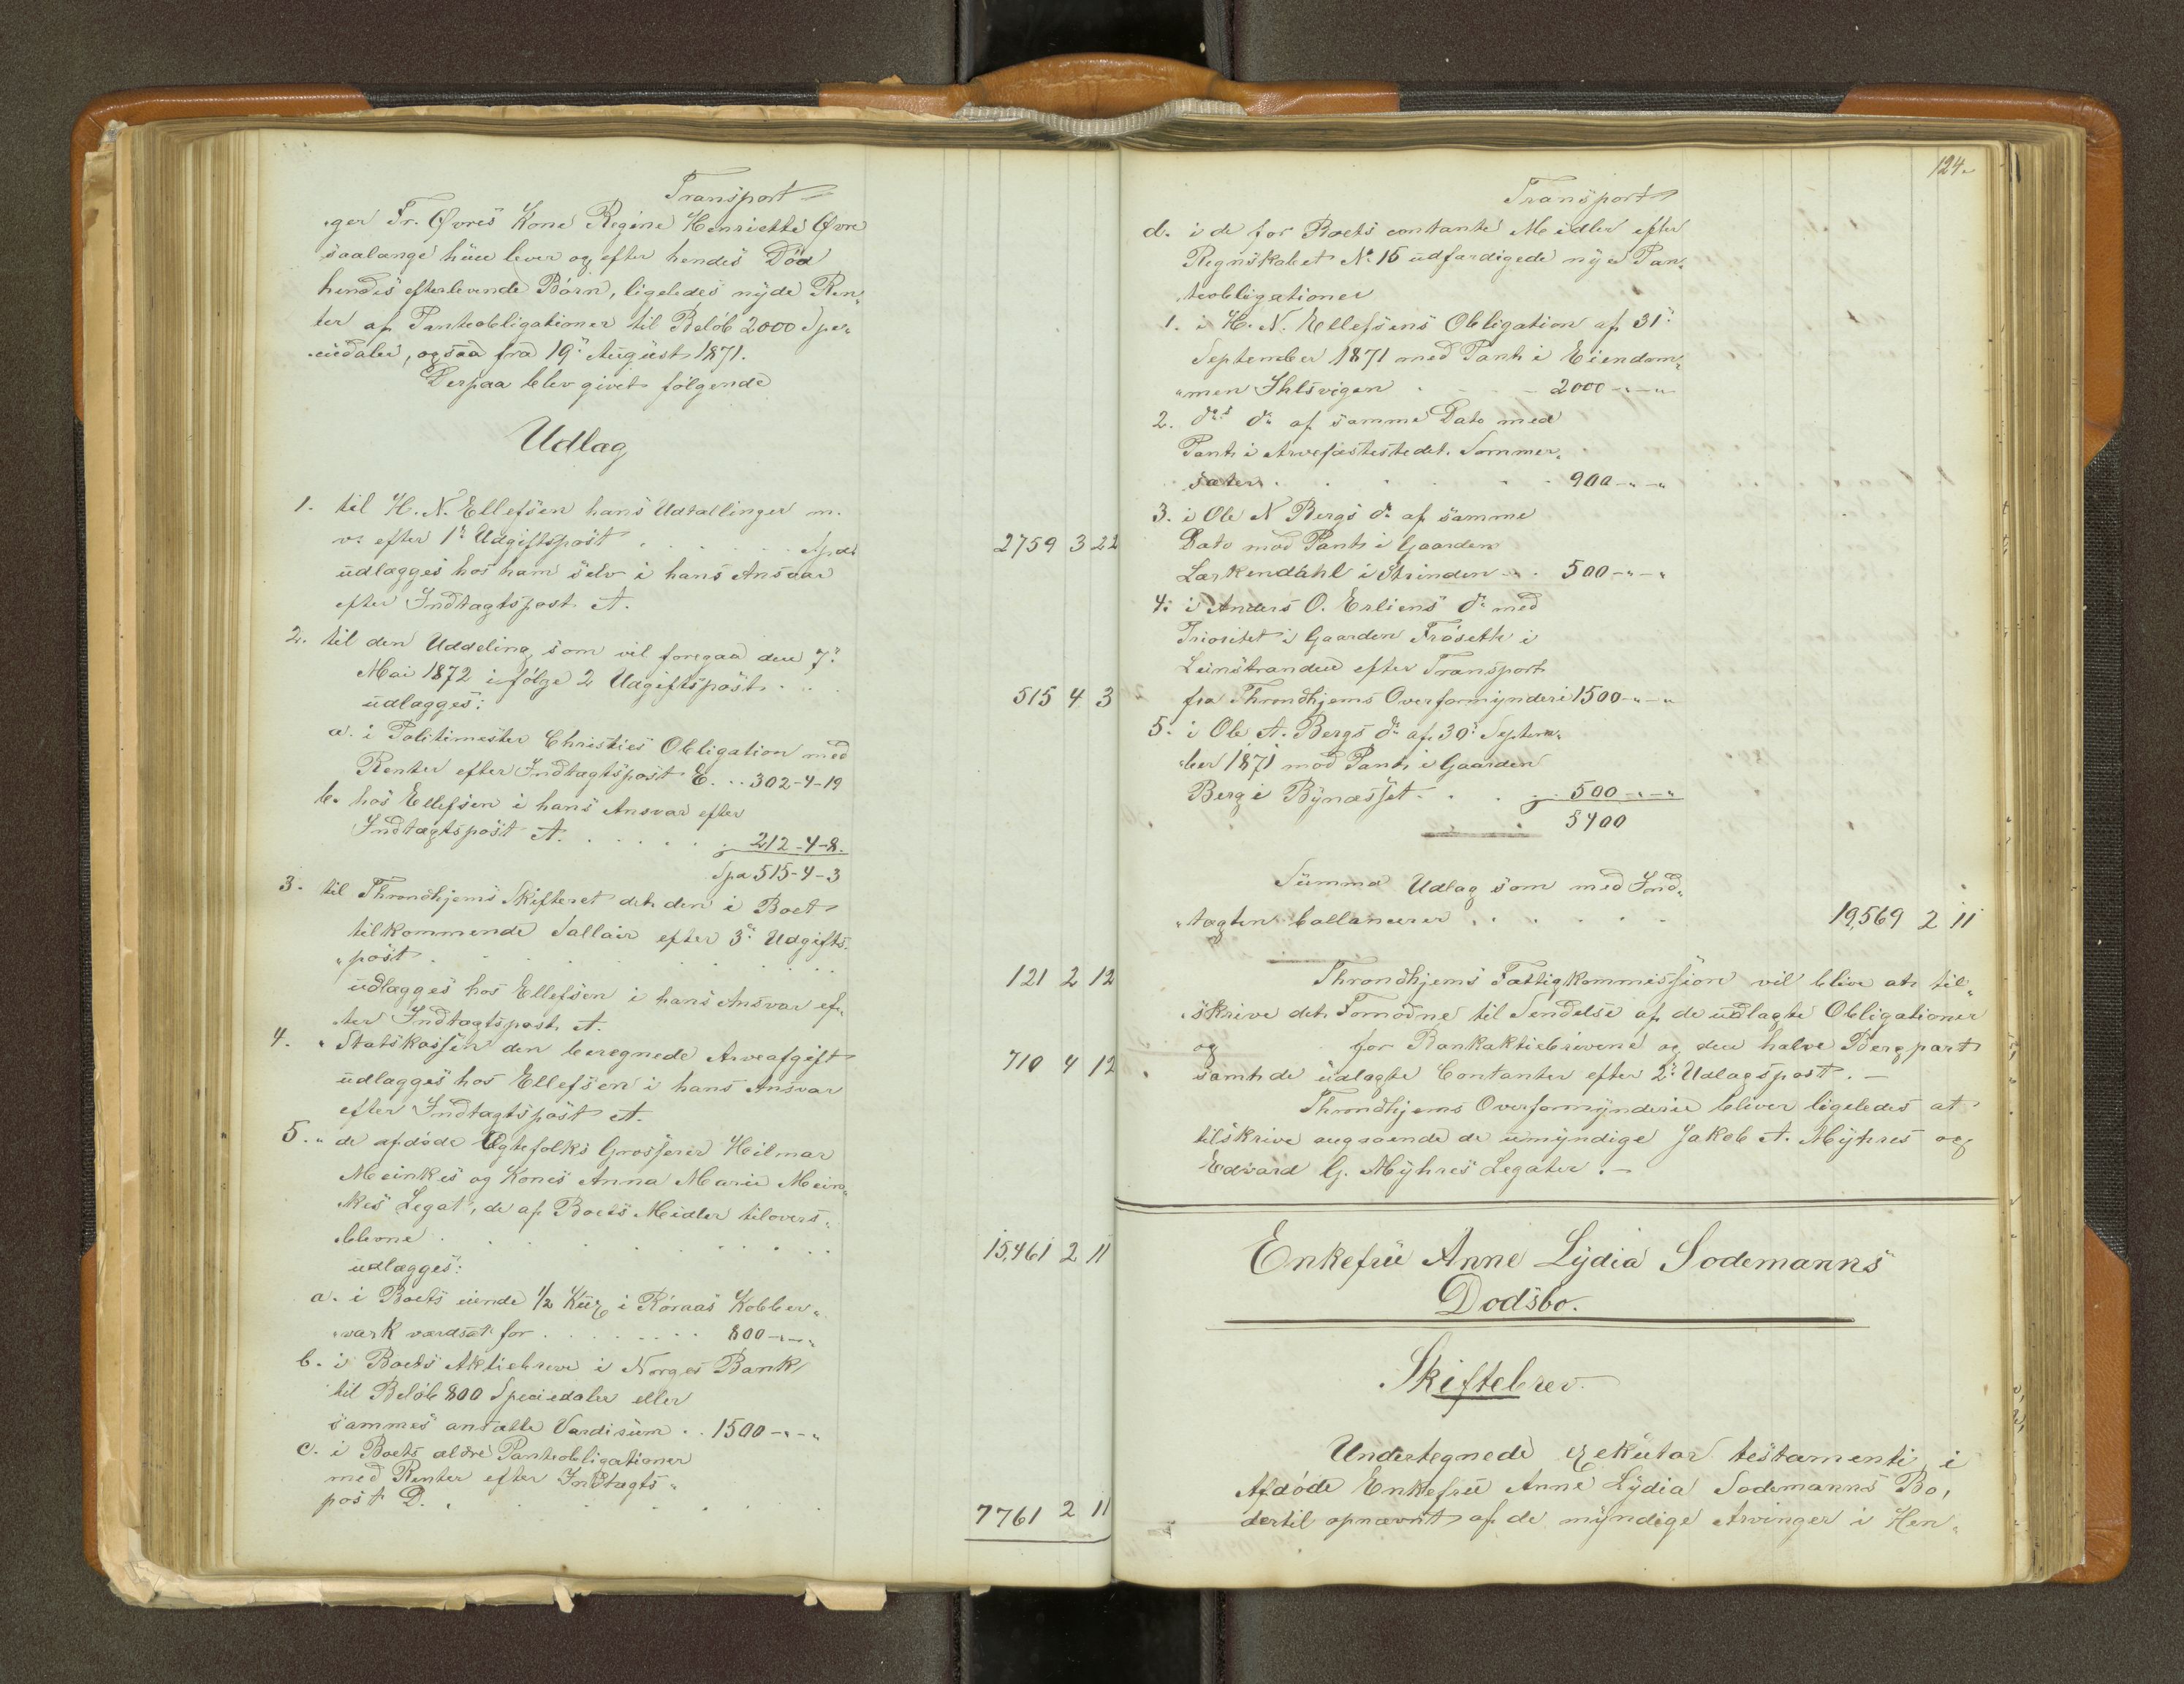 Transport
„ger Fr. Øvres Kone Regine Henriette Øvre
saalænge hun lever og efter hendes Död
hendes efterlevende Börn, ligeledes nyde Ren„
ter af Panteobligationer til Belöb 2000 Spe„
„ciedaler, ogsaa fra 19de August 1871.
Derpaa blev givet fölgende
Udlag
1. til H. N. Ellefsen hans Udtællinger m.
v. efter 1ste Udgiftspost . . . . . Spd. 2759 3 22
udlægges hos ham selv i hans Ansvar
efter Indtægtspost A.
2. til den Uddeling som vil foregaa den 7de
Mai 1872 i fölge 2 Udgiftspost . . . 515 4 3
udlægges:
a. i Politimester Christies Obligation med
Renter efter Indtægtspost E. .. 302-4-19
b. hos Ellefsen i hans Ansvar efter
Indtægtspost A. . . . . . 212-4-8.
Spd 515-4-3
3. til Throndhjems Skifteret det den i Boet
tilkommende Sallair efter 3de Udgifts„
„post . . . . . . 121 2 12
udlægges hos Ellefsen i hans Ansvar ef„
ter Indtægtspost A.
4. „ Statskassen den beregnede Arveafgift 710 4 12
udlægges hos Ellefsen i hans Ansvar
efter Indtægtspost A.
5. „ de afdöde Ægtefolks Grosserer Hilmar
Meinkes og Kones Anna Marie Mein„
kes Legat, de af Boets Midler tilovers„
blevne . . . . . . 15,461 2 11
udlægges:
a. i Boets eiende 1/2 Kux i Röraas Kobber„
„værk værdsat for . . . . . 800-„-„
b. i Boets Aktiebreve i Norges Bank
til Belöb 800 Speciedaler eller
sammes ansatte Værdisum . . 1500-„-„
c. i Boets ældre Panteobligationer
med Renter efter Indtægts„
post D. . . . . . 7761 2 11
124.
Transport
d. i de for Boets contante Midler efter
Regnskabet No 15 udfærdigede nye Pan„
„teobligationer
1. i H. N. Ellefsens Obligation af 31te
September 1871 med Pant i Eiendom„
„men Ihlsvigen . . . 2000-„-„
2. do do af samme Dato med
Pant i Arvefæstestedet Sommer„
sæter . . . . . 900-„-„
3. i Ole N Bergs do af samme
Dato mod Pant i Gaarden
Lerkendahl i Strinden . . 500-„-„
4. i Anders O. Erliens do med
Prioritet i Gaarden Fröseth i
Leinstranden efter Transport
fra Throndhjems Overformynderi 1500-„-„
5. i Ole A. Bergs do af 30te Septem„
„ber 1871 mod Pant i Gaarden
Berg i Bynæsset . . . 500-„-„
5400
Summa Udlag som med Ind„
„tægten ballancerer . . . . . 19,569 2 11
Throndhjems Fattigkommission vil blive at til„
„skrive det Fornödne til Sendelse af de udlagte Obligationer
og for Bankaktiebrevene og den halve Bergpart
samt de udlagte Contanter efter 2de Udlagspost. —
Throndhjems Overformynderie bliver ligeledes at
tilskrive angaaende de umyndige Jakob A. Myhres og
Edvard G. Myhres Legater. —
Enkefru Anne Lydia Sodemanns
Dödsbo.
Skiftebrev.
Undertegnede exekutor testamenti i
Afdöde Enkefru Anne Lydia Sodemanns Bo,
dertil opnævnt af de myndige Arvinger i Hen„